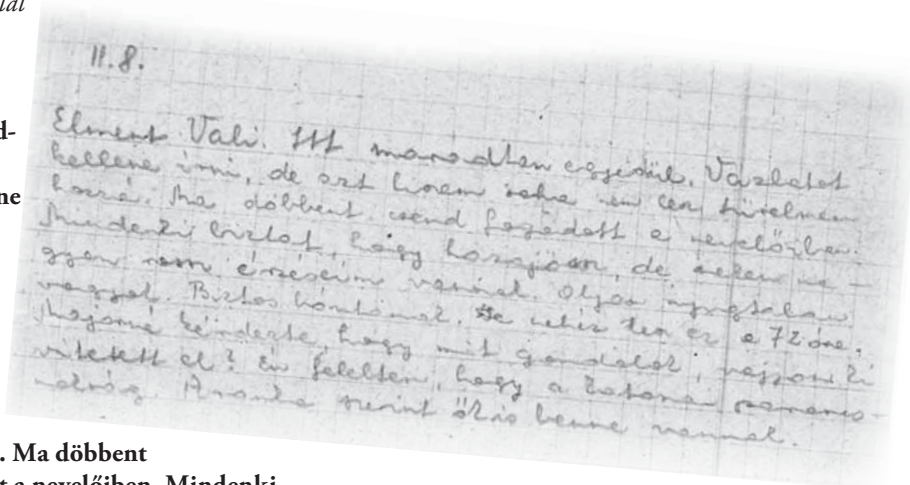 tal
II. 8.
d-
ne
Elment Vali. Itt maradtam egyedül. Vázlatot
kellene írni, de ezt hiszem soha nem lesz türelmem
hozzá. Ma döbbent csend fogadott a nevelőiben.
Mindenki biztat, hogy hazajön, de nekem
érzéseim vannak. Olyan nyugtalan
vagyok. Biztos bántanak, de nehéz lesz ez a 72 óra.
kérdezte, hogy mit gondolok, vajjon ki
vitetett el? Én feleltem, hogy a katonai parancs-
nokság. szerint ők is benne vannak.
. Ma döbbent
t a nevelőiben. Mindenki